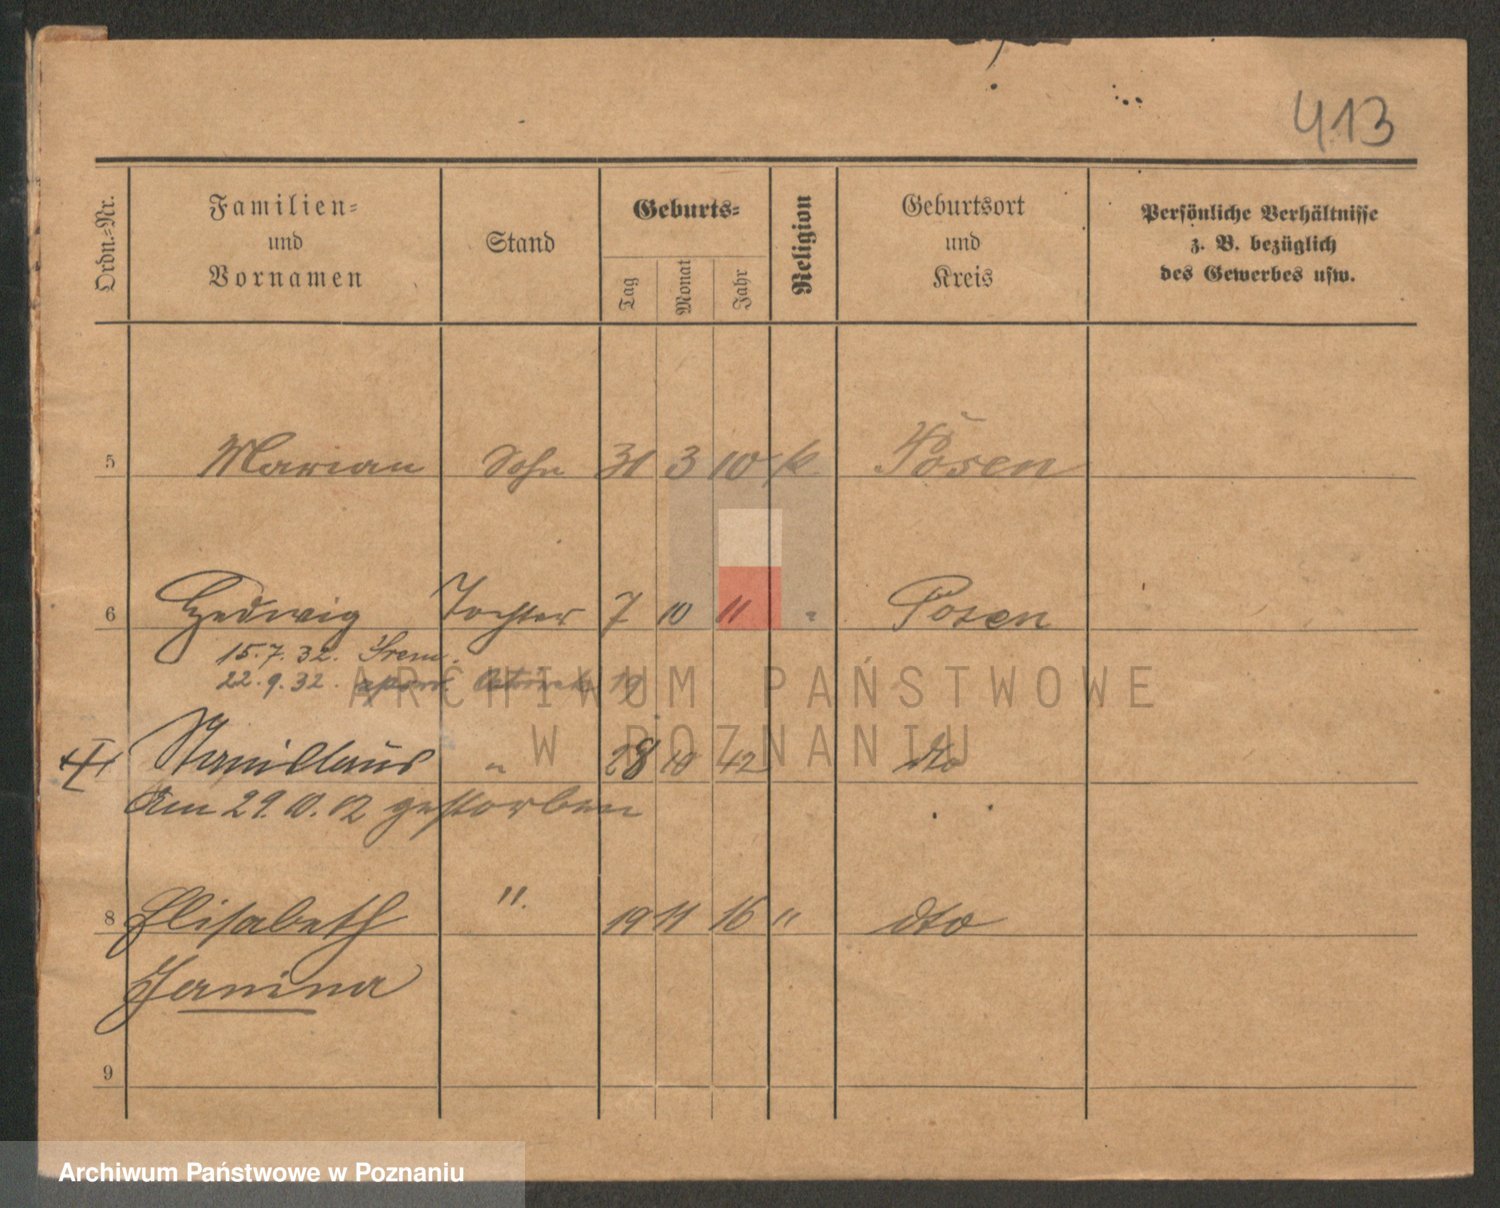 413
Ordn.-Nr.
Familien-
und
Vornamen
Stand
Geburts-
Tag
Monat
Jahr
Religion
Geburtsort
und
Kreis
Persönliche Verhältnisse
z. B. bezüglich
des Gewerbes usw.
5 Marian Sohn 31 3 10 k Posen
6 Hedwig Tochter 7 10 11 " Posen
15.7.32. Śrem.
22.9.32. 19
Stanislaus " 28 10 12 dto
Am 29.10.12 gestorben
8 Elisabeth " 19 11 16 " dto
Janina
9
ARCHIWUM PAŃSTWOWE
W POZNANIU
Archiwum Państwowe w Poznaniu